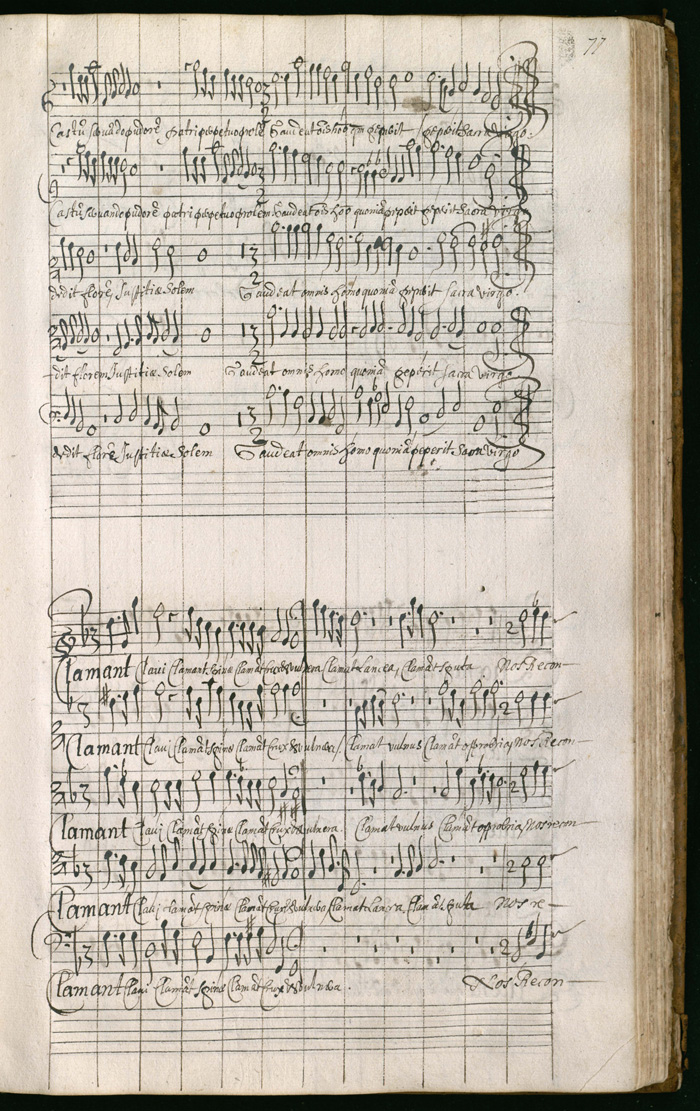 77
patri perpetuo prolẽ Gaudeat peperit / peperit sacra virgo.
patri perpetuo prolem Gaudeat peperit peperit sacra virgo
dedit florẽ Justitiæ solem Gaudeat omnis homo quoniã peperit sacra virgo.
dit florem Justitiæ solem Gaudeat omnis homo quoniã peperit sacra virgo
dedit florẽ Justitiæ solem Gaudeat omnis homo quoniã peperit sacra virgo
Clamant Clavi Clamant spinæ Clamãt Crux & vulnera Clamat Lancea, Clamãt sputa Nos Recon
Clamant Clavi Clamãt spinæ Clamãt Crux & vulnera / Clamat vulnus Clamãt opprobria, Nos Recon
Clamant Clavi Clamãt spinæ Clamãt Crux & vulnera. Clamat vulnus Clamãt opprobria, Nos recon
Clamant Clavi Clamãt spinæ Clamãt Crux & vulnera Clamat Lancea, Clamãt sputa Nos re
Clamant Clavi Clamãt spinæ Clamãt Crux & vulnera. Nos Recon